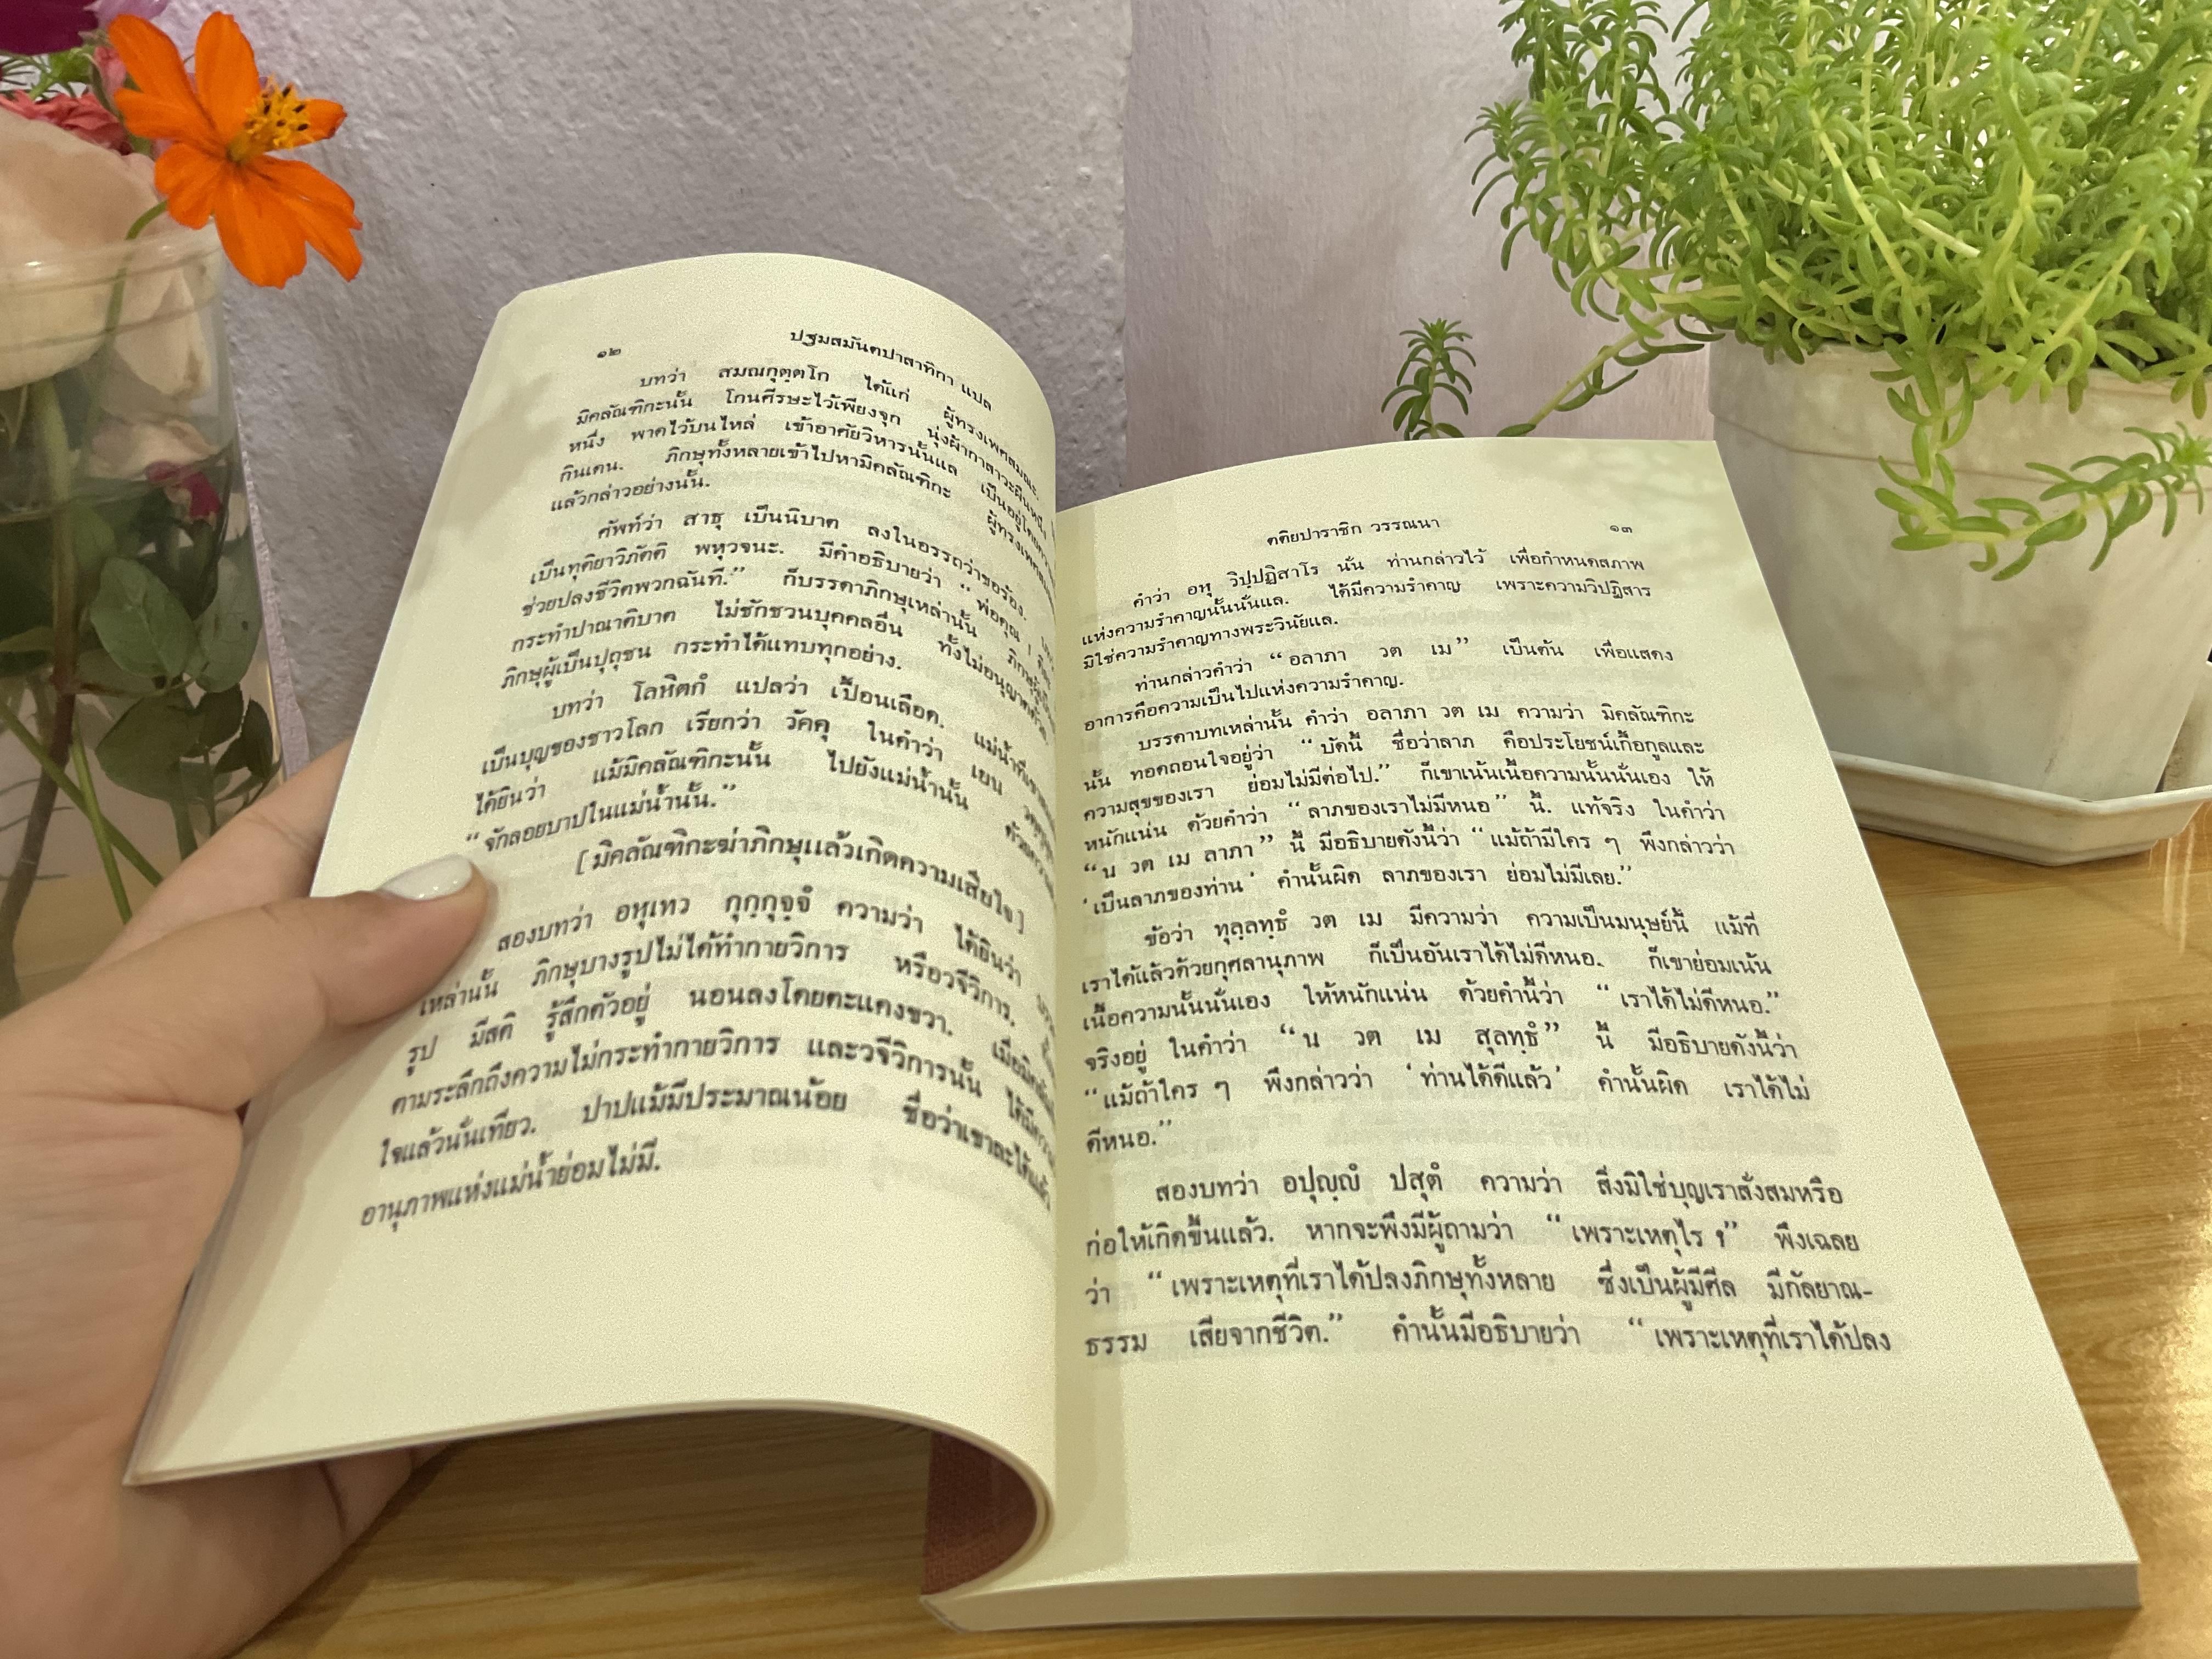 ๑๒ ปฐมสมันตปาสาทิกา แปล
บทว่า สมณกุตฺตโก ได้แก่ ผู้ทรงเพศสมณะ.
มิคลัณฑิกะนั้น โกนศีรษะไว้เพียงจุก นุ่งผ้ากาสาวะผืนหนึ่ง
หนึ่ง พาดไว้บนไหล่ เข้าอาศัยวิหารนั้นแล เป็นอยู่โดยความ
กินเดน. ภิกษุทั้งหลายเข้าไปหามิคลัณฑิกะ ผู้ทรงเพศสมณะ
แล้วกล่าวอย่างนั้น.
ศัพท์ว่า สาธุ เป็นนิบาต ลงในอรรถว่าขอร้อง.
เป็นทุติยาวิภัตติ พหุวจนะ. มีคำอธิบายว่า “ พ่อคุณ !
ช่วยปลงชีวิตพวกฉันที.” ก็บรรดาภิกษุเหล่านั้น ภิกษุผู้เป็น
กระทำปาณาติบาต ไม่ชักชวนบุคคลอื่น ทั้งไม่อนุญาตด้วย.
ภิกษุผู้เป็นปุถุชน กระทำได้แทบทุกอย่าง.
บทว่า โลหิตกํ แปลว่า เปื้อนเลือด. แม่น้ำที่เขา
เป็นบุญของชาวโลก เรียกว่า วัคคุ ในคำว่า เยน
ได้ยินว่า แม้มิคลัณฑิกะนั้น ไปยังแม่น้ำนั้น ด้วย
“ จักลอยบาปในแม่น้ำนั้น.”
[ มิคลัณฑิกะฆ่าภิกษุแล้วเกิดความเสียใจ ]
สองบทว่า อหุเทว กุกฺกุจฺจํ ความว่า ได้ยินว่า
เหล่านั้น ภิกษุบางรูปไม่ได้ทำกายวิการ หรือวจีวิการ.
รูป มีสติ รู้สึกตัวอยู่ นอนลงโดยตะแคงขวา. เมื่อ
ตามระลึกถึงความไม่กระทำกายวิการ และวจีวิการนั้น ได้มีความ
ใจแล้วนั่นเทียว. ปาปแม้มีประมาณน้อย ชื่อว่าเขาละได้แล้ว
อานุภาพแห่งแม่น้ำย่อมไม่มี.
ตติยปาราชิก วรรณนา ๑๓
คำว่า อหุ วิปฺปฏิสาโร นั่น ท่านกล่าวไว้ เพื่อกำหนดสภาพ
แห่งความรำคาญนั้นนั่นแล. ได้มีความรำคาญ เพราะความวิปฏิสาร
มิใช่ความรำคาญทางพระวินัยแล.
ท่านกล่าวคำว่า “ อลาภา วต เม” เป็นต้น เพื่อแสดง
อาการคือความเป็นไปแห่งความรำคาญ.
บรรดาบทเหล่านั้น คำว่า อลาภา วต เม ความว่า มิคลัณฑิกะ
นั้น ทอดถอนใจอยู่ว่า “ บัดนี้ ชื่อว่าลาภ คือประโยชน์เกื้อกูลและ
ความสุขของเรา ย่อมไม่มีต่อไป.” ก็เขาเน้นเนื้อความนั้นนั่นเอง ให้
หนักแน่น ด้วยคำว่า “ ลาภของเราไม่มีหนอ” นี้. แท้จริง ในคำว่า
“ น วต เม ลาภา” นี้ มีอธิบายดังนี้ว่า “ แม้ถ้ามีใคร ๆ พึงกล่าวว่า
‘ เป็นลาภของท่าน’ คำนั้นผิด ลาภของเรา ย่อมไม่มีเลย.”
ข้อว่า ทุลฺลทฺธํ วต เม มีความว่า ความเป็นมนุษย์นี้ แม้ที่
เราได้แล้วด้วยกุศลานุภาพ ก็เป็นอันเราได้ไม่ดีหนอ. ก็เขาย่อมเน้น
เนื้อความนั้นนั่นเอง ให้หนักแน่น ด้วยคำนี้ว่า “ เราได้ไม่ดีหนอ.”
จริงอยู่ ในคำว่า “ น วต เม สุลทฺธํ” นี้ มีอธิบายดังนี้ว่า
“ แม้ถ้าใคร ๆ พึงกล่าวว่า ‘ ท่านได้ดีแล้ว’ คำนั้นผิด เราได้ไม่
ดีหนอ.”
สองบทว่า อปุญฺญํ ปสุตํ ความว่า สิ่งมิใช่บุญเราสั่งสมหรือ
ก่อให้เกิดขึ้นแล้ว. หากจะพึงมีผู้ถามว่า “ เพราะเหตุไร ?” พึงเฉลย
ว่า “ เพราะเหตุที่เราได้ปลงภิกษุทั้งหลาย ซึ่งเป็นผู้มีศีล มีกัลยาณ-
ธรรม เสียจากชีวิต.” คำนั้นมีอธิบายว่า “ เพราะเหตุที่เราได้ปลง